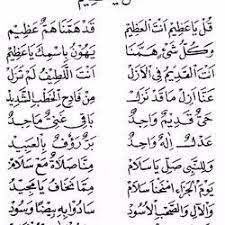 قُلْ يَا عَظِيمُ أَنْتَ الْعَظِيمُ قَدْ هَمَّنَا هَمٌّ عَظِيمُ
وَكُلُّ شَيْءٍ هَمَّنَا يَهُونُ بِاسْمِكَ يَا عَظِيمُ
أَنْتَ الْقَدِيمُ فِي الْأَزَلِ أَنْتَ اللَّطِيفُ لَمْ تَزَلْ
عَنَّا أَزِلْ مَا قَدْ نَزَلَ مِنْ فَادِحِ الْخَطْبِ الشَّدِيدِ
حَيٌّ قَدِيمٌ وَاجِدُ بَاقٍ غَنِيٌّ مَاجِدُ
عَدْلٌ إِلَهٌ وَاحِدُ بَرٌّ رَؤُوفٌ بِالْعَبِيدِ
وَلِلنَّبِيِّ صَلِّ يَا سَلَامُ مِنَّا صَلَاةً مَعَ سَلَامِ
يَوْمَ الْجَزَاءِ امْنَحْنَا سَلَامِ مِمَّا نَخَافُ يَا مَجِيدُ
وَالْآلِ وَالصَّحْبِ الْأُسُودِ سَادُوا بِهِ بِيضًا وَسُودِ